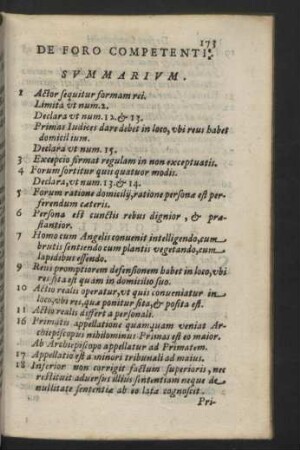 173
DE FORO COMPETENTI.
SVMMARIVM.
1 Actor sequitur formam rei.
Limita vt num.2.
Declara vt num.12.& 13.
Primas Iudices dare debet in loco, vbi reus habet
domicilium.
Declara vt num.15.
3 Excepcio firmat regulam in non exceptuatis.
4 Forum sortitur quis quatuor modis.
Declara, vt num.13.& 14.
5 Forum ratione domicilij, ratione personæ est præ-
ferendum cæteris.
6 Persona est cunctis rebus dignior, & præ-
stantior.
7 Homo cum Angelis conuenit intelligendo, cum
brutis sentiendo cum plantis vegetando, cum
lapidibus essendo.
9 Reus promptiorem defensionem habet in loco, vbi
res sita est quàm in domicilio suo.
10 Actio realis operatur, vt quis conueniatur in
loco, vbi res, qua ponitur sita, & posita est.
11 Actio realis differt a personali.
16 Primatis appellatione quamquam veniat Ar-
chiepiscopus nihilominus Primas est eo maior.
Ab Archiepiscopo appellatur ad Primatem.
17 Appellatio est a minori tribunali ad maius.
18 Inferior non corrigit factum superioris, nec
restituit aduersus illius sententiam neque de
nullitate sententiæ ab eo lata cognoscit.
Pri-